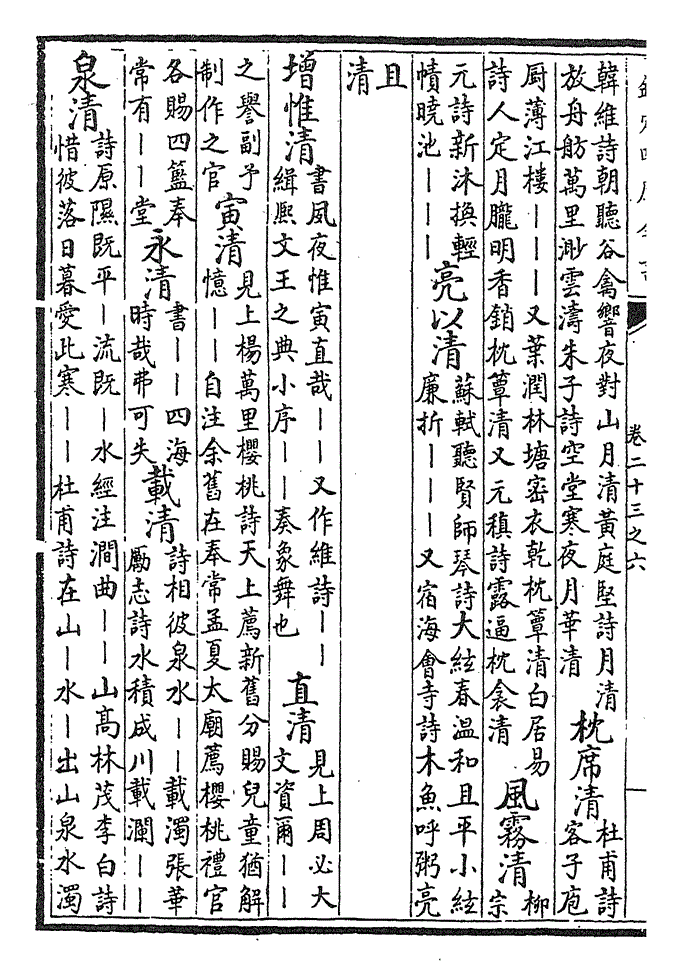 卷二十三之六
韓維詩朝聽谷禽響夜對山月清黃庭堅詩月清放舟舫萬里渺雲濤朱子詩空堂寒夜月華清 枕席清 杜甫詩客子庖
厨薄江樓｜｜｜又葉潤林塘宻衣乾枕簟清白居易詩人定月朧明香銷枕簟清又元稹詩露逼枕衾清 風霧清 柳宗
元詩新沐換輕幘曉池｜｜｜ 亮以清 蘇軾聽賢師琴詩大絃春溫和且平小絃廉折｜｜｜又宿海會寺詩木魚呼粥亮
且清
增惟清 書夙夜惟寅直哉｜｜又作維詩｜｜緝熙文王之典小序｜｜奏象舞也 直清 見上周必大文資爾｜｜
之譽副予制作之官 寅清 見上楊萬里櫻桃詩天上薦新舊分賜兒童猶解憶｜｜自注余舊在奉常孟夏太廟薦櫻桃禮官
各賜四籃奉常有｜｜堂 永清 書｜｜四海時哉弗可失 載清 詩相彼泉水｜｜載濁張華勵志詩水積成川載瀾｜｜
泉清 詩原隰既平｜流既｜水經注澗曲｜｜山高林茂李白詩惜彼落日暮愛此寒｜｜杜甫詩在山｜水｜出山泉水濁